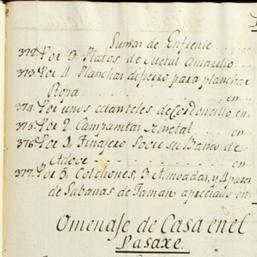 Sumas de Enfrente
372. Por 3 Platos de Metal Amarillo
373. Por 4 Planchas de fierro para planchar
Ropa en
374. Por unos cuanteles de Cordoncillo en
375. Por 2 Campanitas de metal en
376. Por 1 Tinajero sobre su Banco de
Adove en
377. Por 5 Colchones, 3 Almoadas, y 4 pares
de Sabanas de Taman apreciado en
Omenaje de Casa en el
Pasaxe.